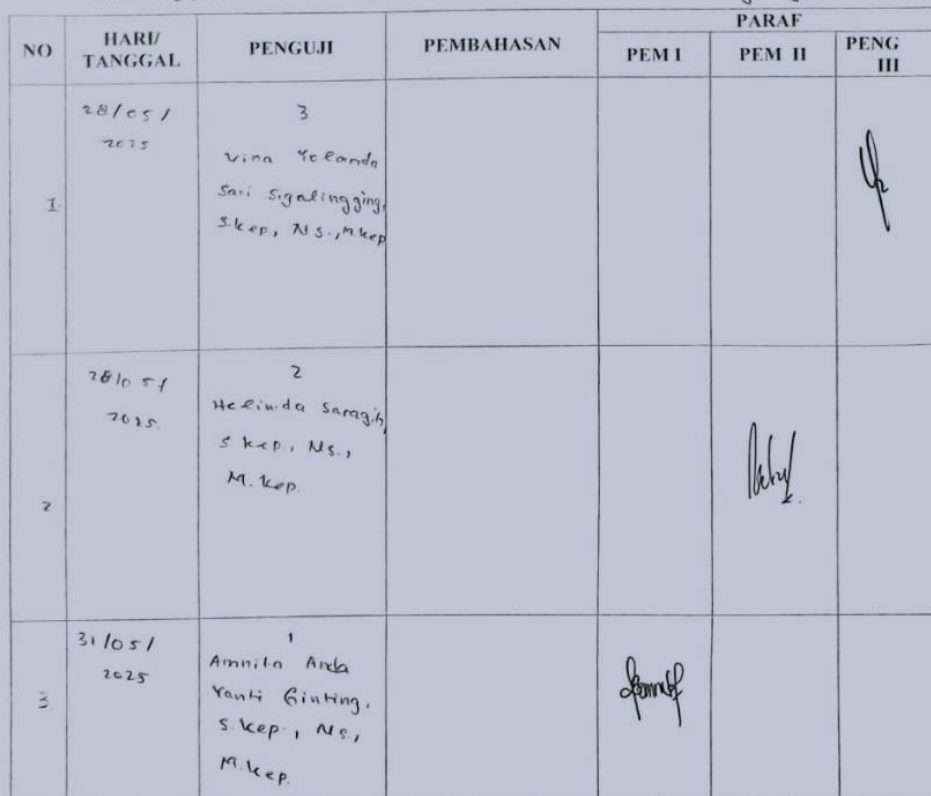 NO HARI/ TANGGAL PENGUJI PEMBAHASAN PARAF
PEM I PEM II PENG III
1. 28/05/ 3
2025
Vina Yolanda
Sari Sigalingging,
S.kep., Ns., M.kep
2 28/05/ 2
2025.
Helinda Saragih,
S.kep., Ns.,
M.kep.
3. 31/05/ 1
2025
Amnita Anda
Yanti Ginting,
S.kep., Ns.,
M.kep.